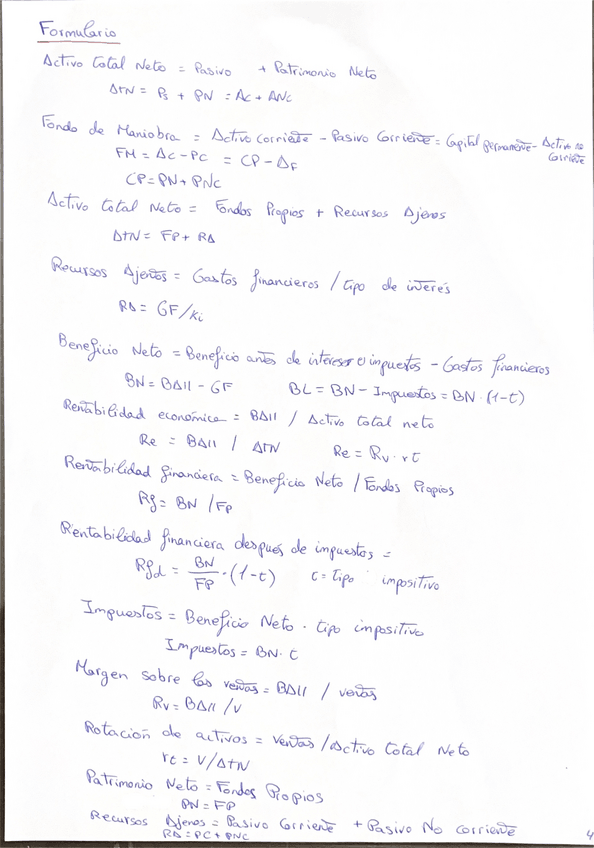 Formulario
Activo total Neto = Pasivo + Patrimonio Neto
AtN = Ps + PN = Ac + ANc
Fondo de Maniobra = Activo corriente - Pasivo Corriente = Capital permanente - Activo no corriente
FM = Ac - PC = CP - AF
CP = PN + PNC
Activo total Neto = Fondos Propios + Recursos Ajenos
AtN = FP + RA
Recursos Ajenos = Gastos financieros / tipo de interés
RA = GF/Ki
Beneficio Neto = Beneficio antes de intereses e impuestos - Gastos financieros
BN = BAII - GF BL = BN - Impuestos = BN · (1-t)
Rentabilidad económica = BAII / Activo total neto
Re = BAII / AtN Re = Rv · rt
Rentabilidad financiera = Beneficio Neto / Fondos Propios
Rf = BN / FP
Rentabilidad financiera después de impuestos =
Rfd = BN/FP · (1-t) t = tipo impositivo
Impuestos = Beneficio Neto · tipo impositivo
Impuestos = BN · t
Margen sobre las ventas = BAII / ventas
Rv = BAII / v
Rotación de activos = ventas / Activo total Neto
rt = V/AtN
Patrimonio Neto = Fondos Propios
PN = FP
Recursos Ajenos = Pasivo Corriente + Pasivo No corriente
RA = PC + PNC
4